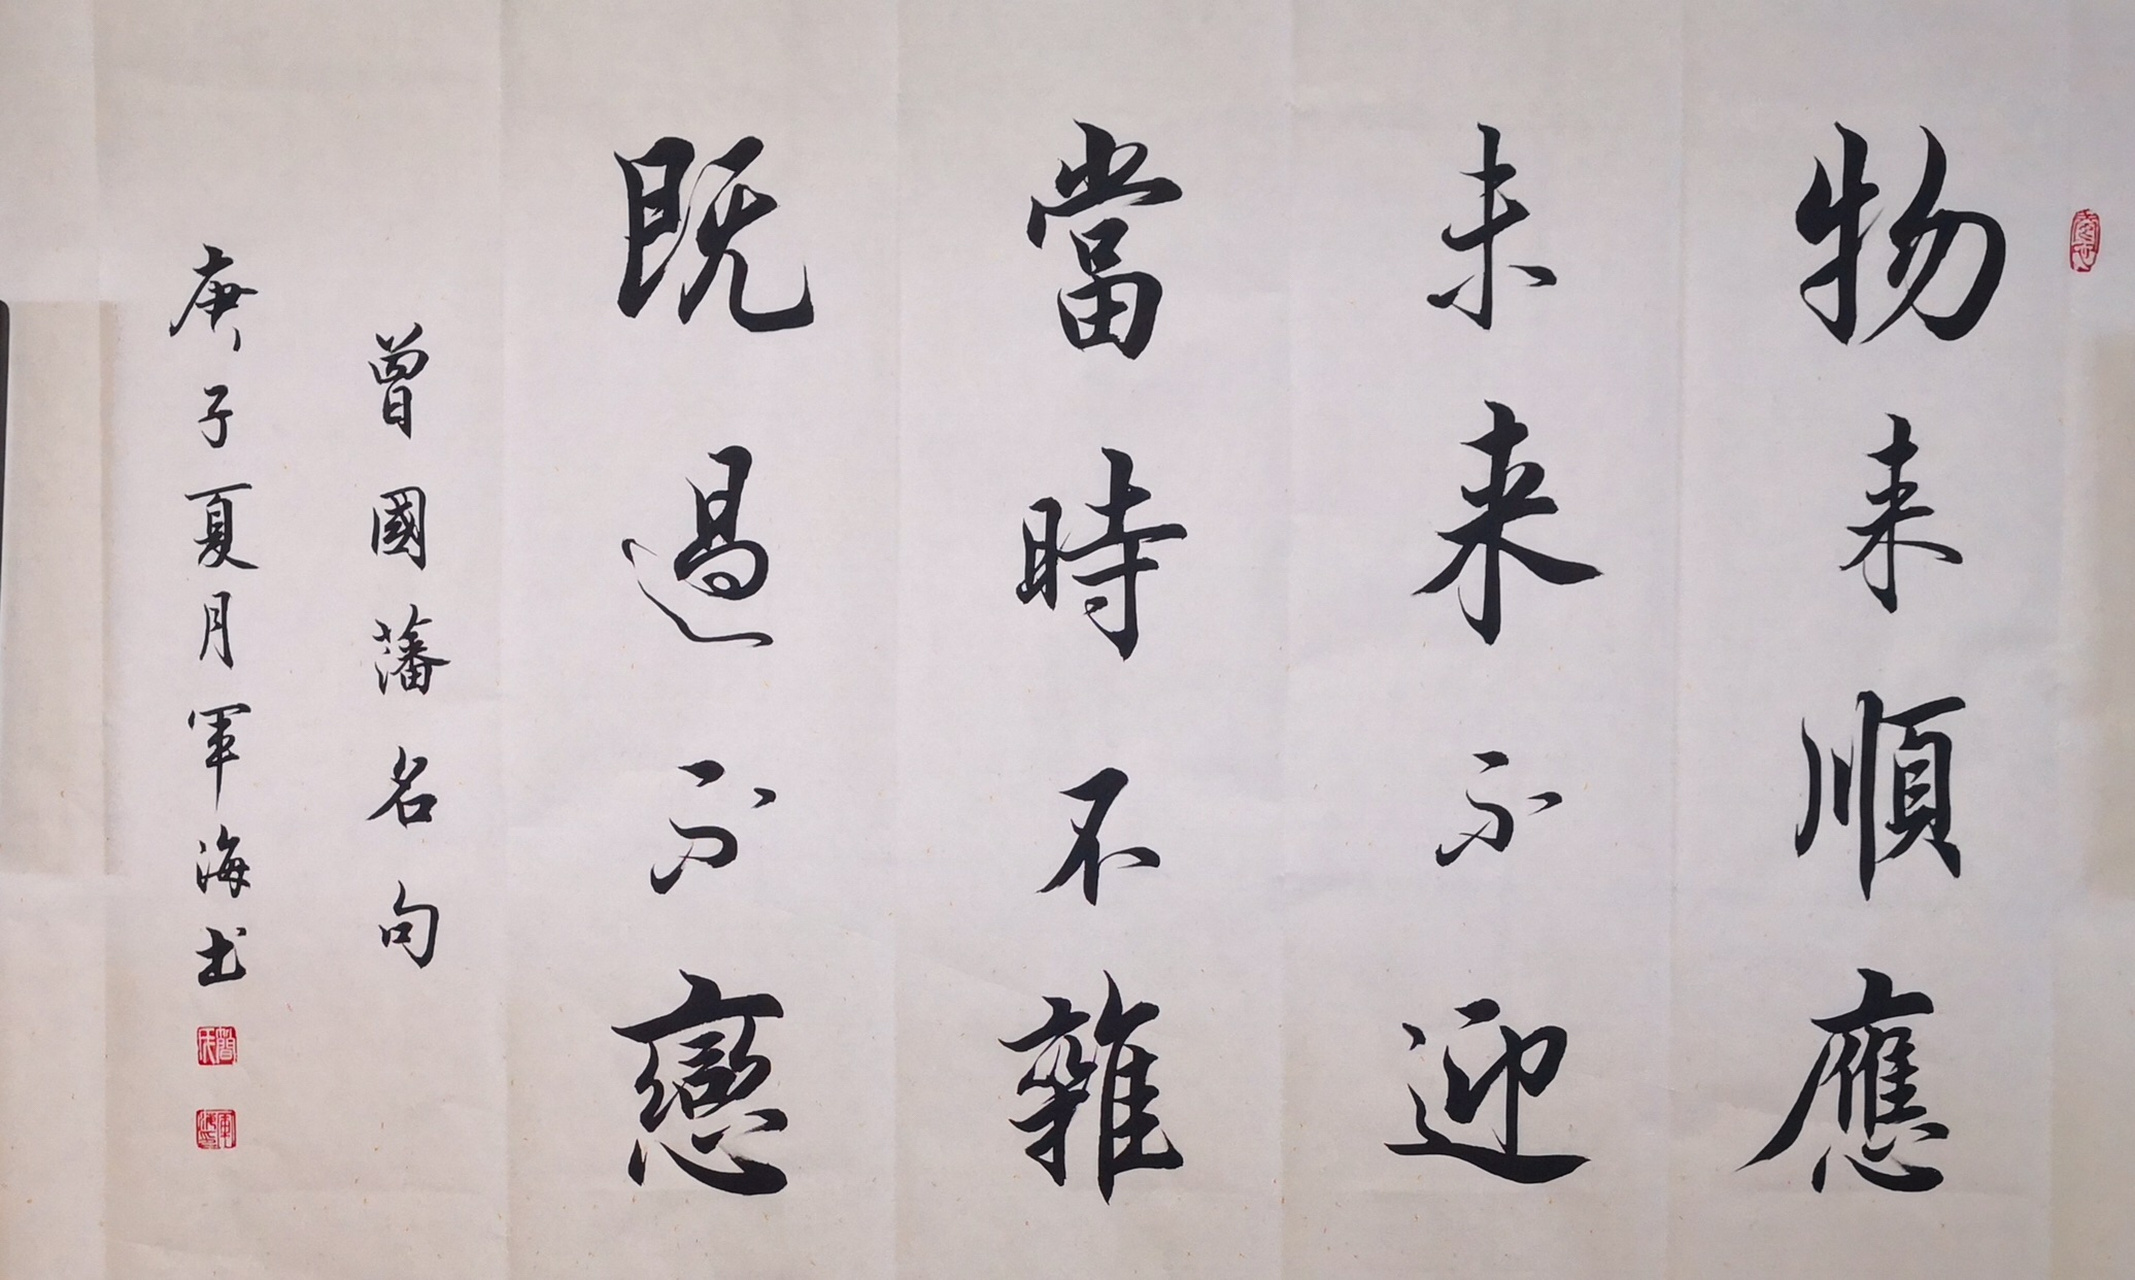 物来順應
未来不迎
當時不雜
既過不戀
曾國藩名句
庚子夏月軍海书